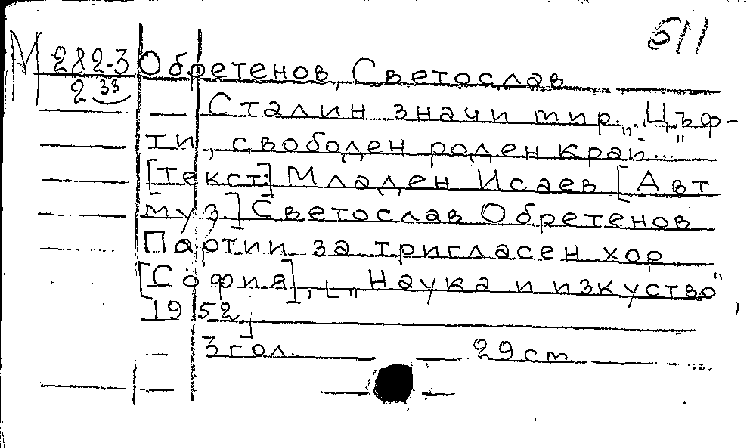 511
М 282-3 Обретенов, Светослав
2 33
Сталин значи мир. „Цъф-
ти, свободен роден край..."
[Текст:] Младен Исаев [Авт
муз] Светослав Обретенов
Партии за тригласен хор
[София], „Наука и изкуство",
1952
3 гол. 29 ст